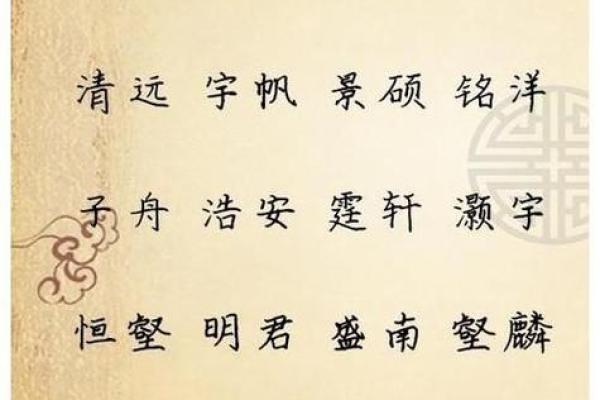 清远 宇帆 景硕 铭洋
子舟 浩安 霆轩 灏宇
恒壑 明君 盛南 壑麟